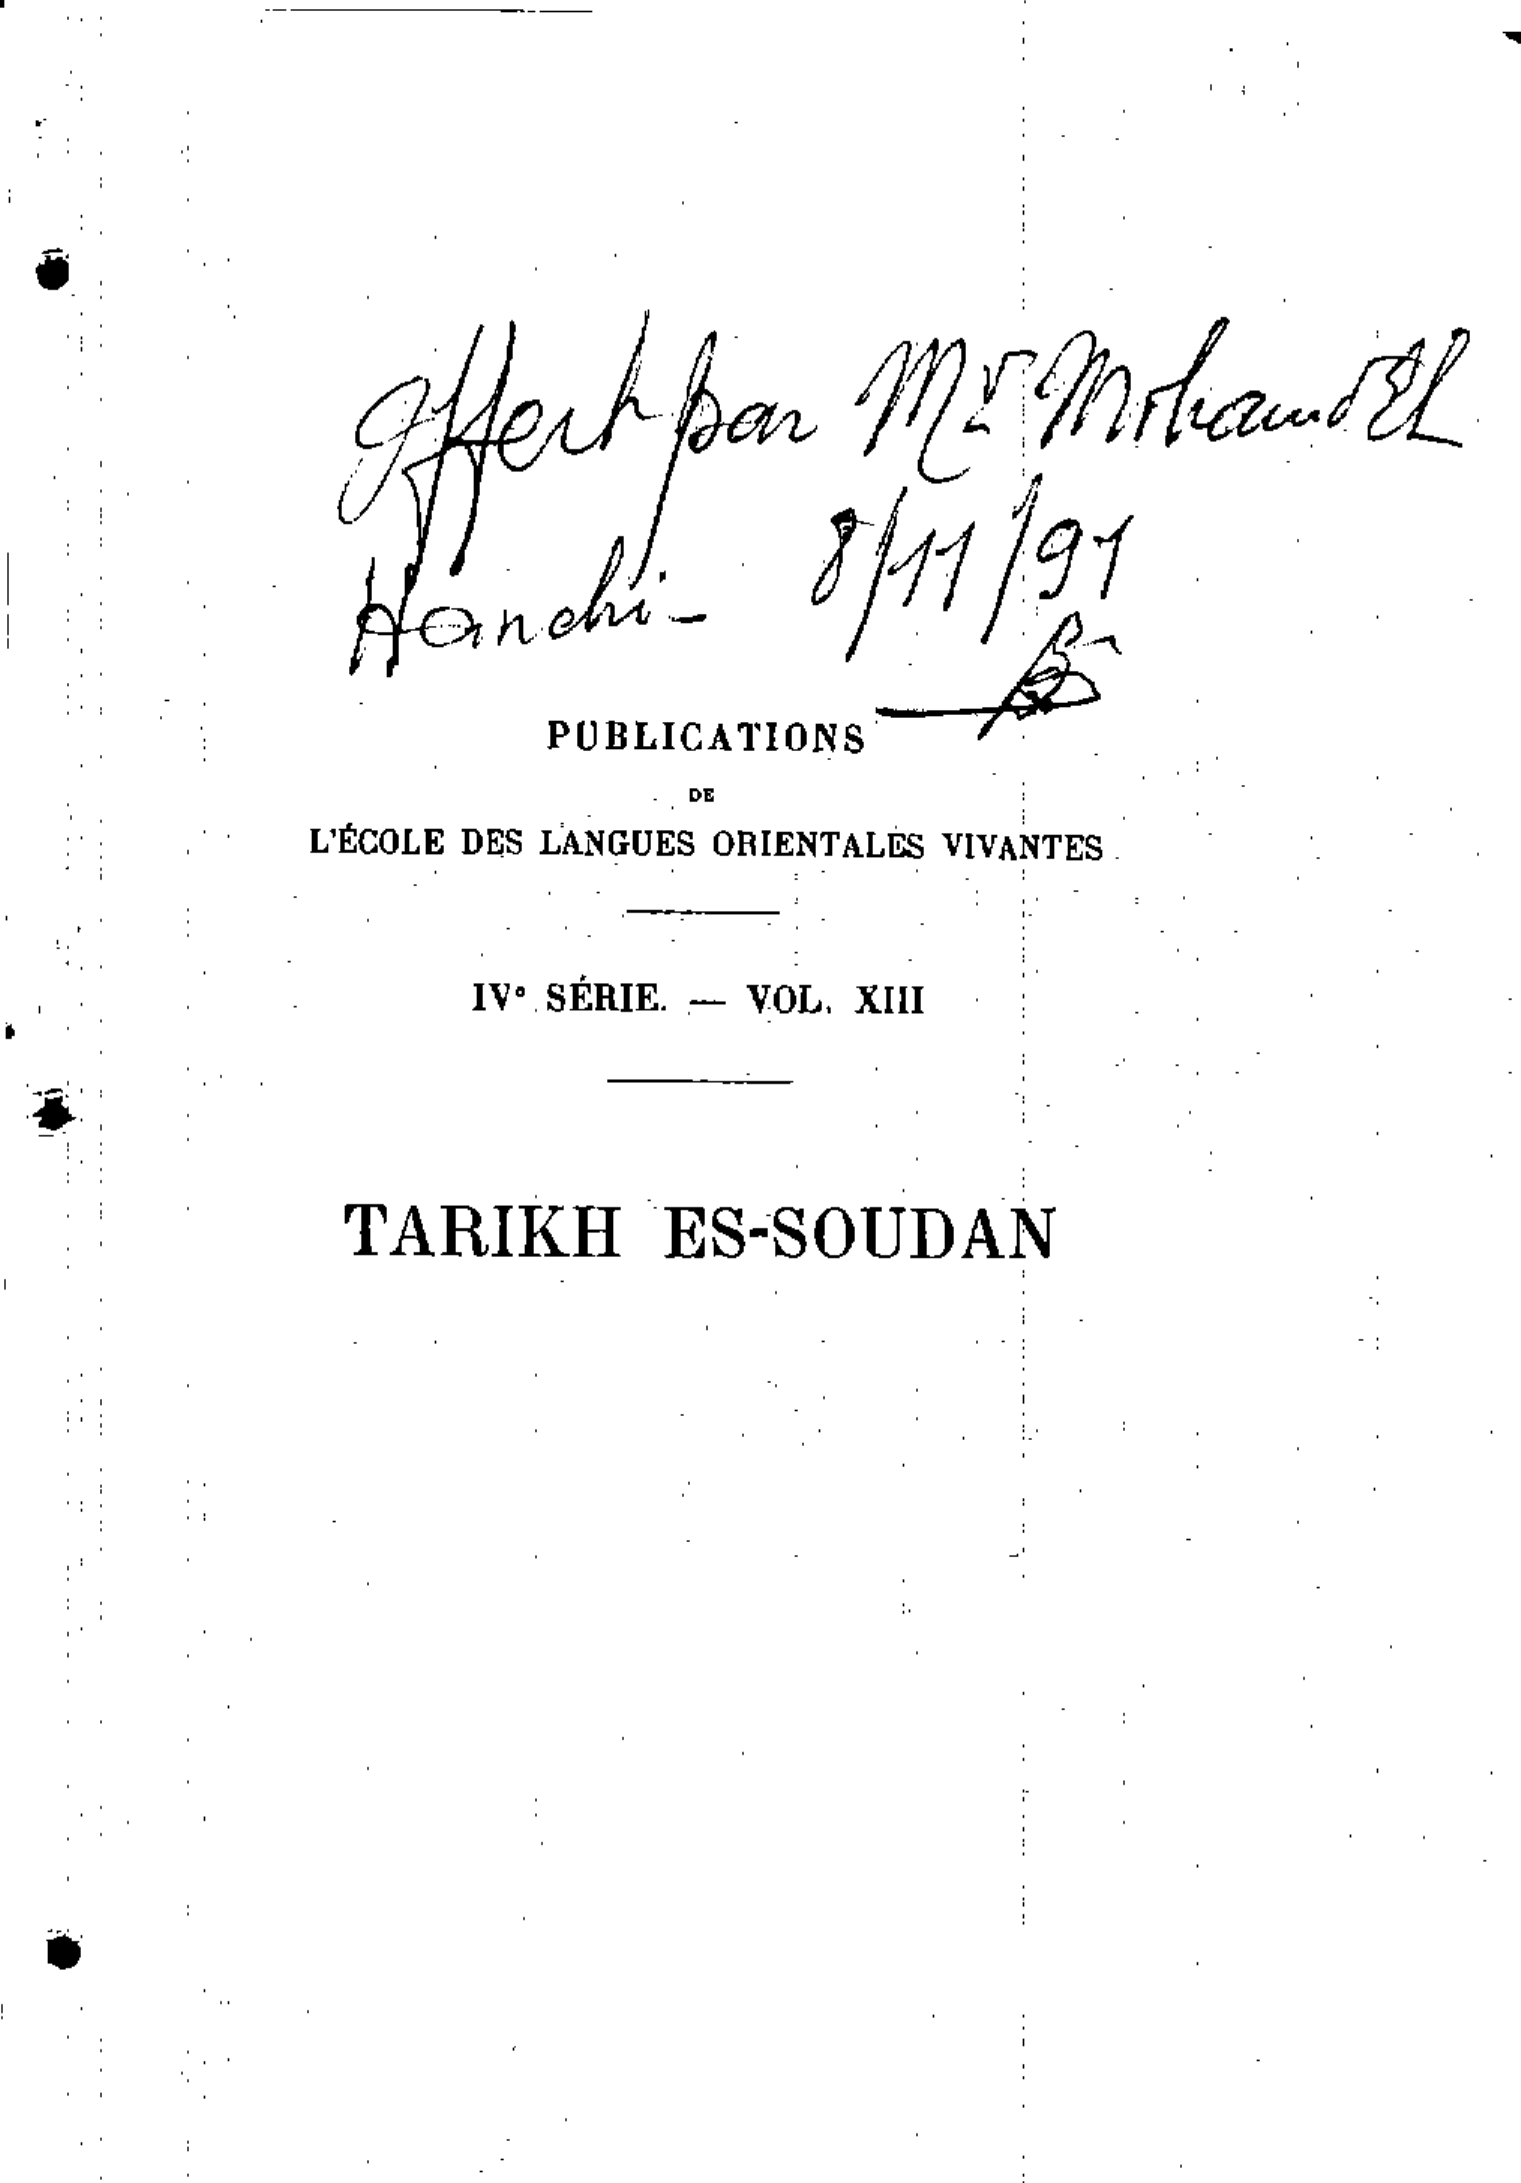 Offert par Mr Mohamed El
Hanchi - 8/11/91
PUBLICATIONS
DE
L'ÉCOLE DES LANGUES ORIENTALES VIVANTES
IVe SÉRIE. — VOL. XIII
TARIKH ES-SOUDAN